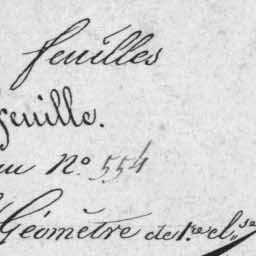 feuilles
feuille.
au N.° 554
Géomètre de 1.re cl.se